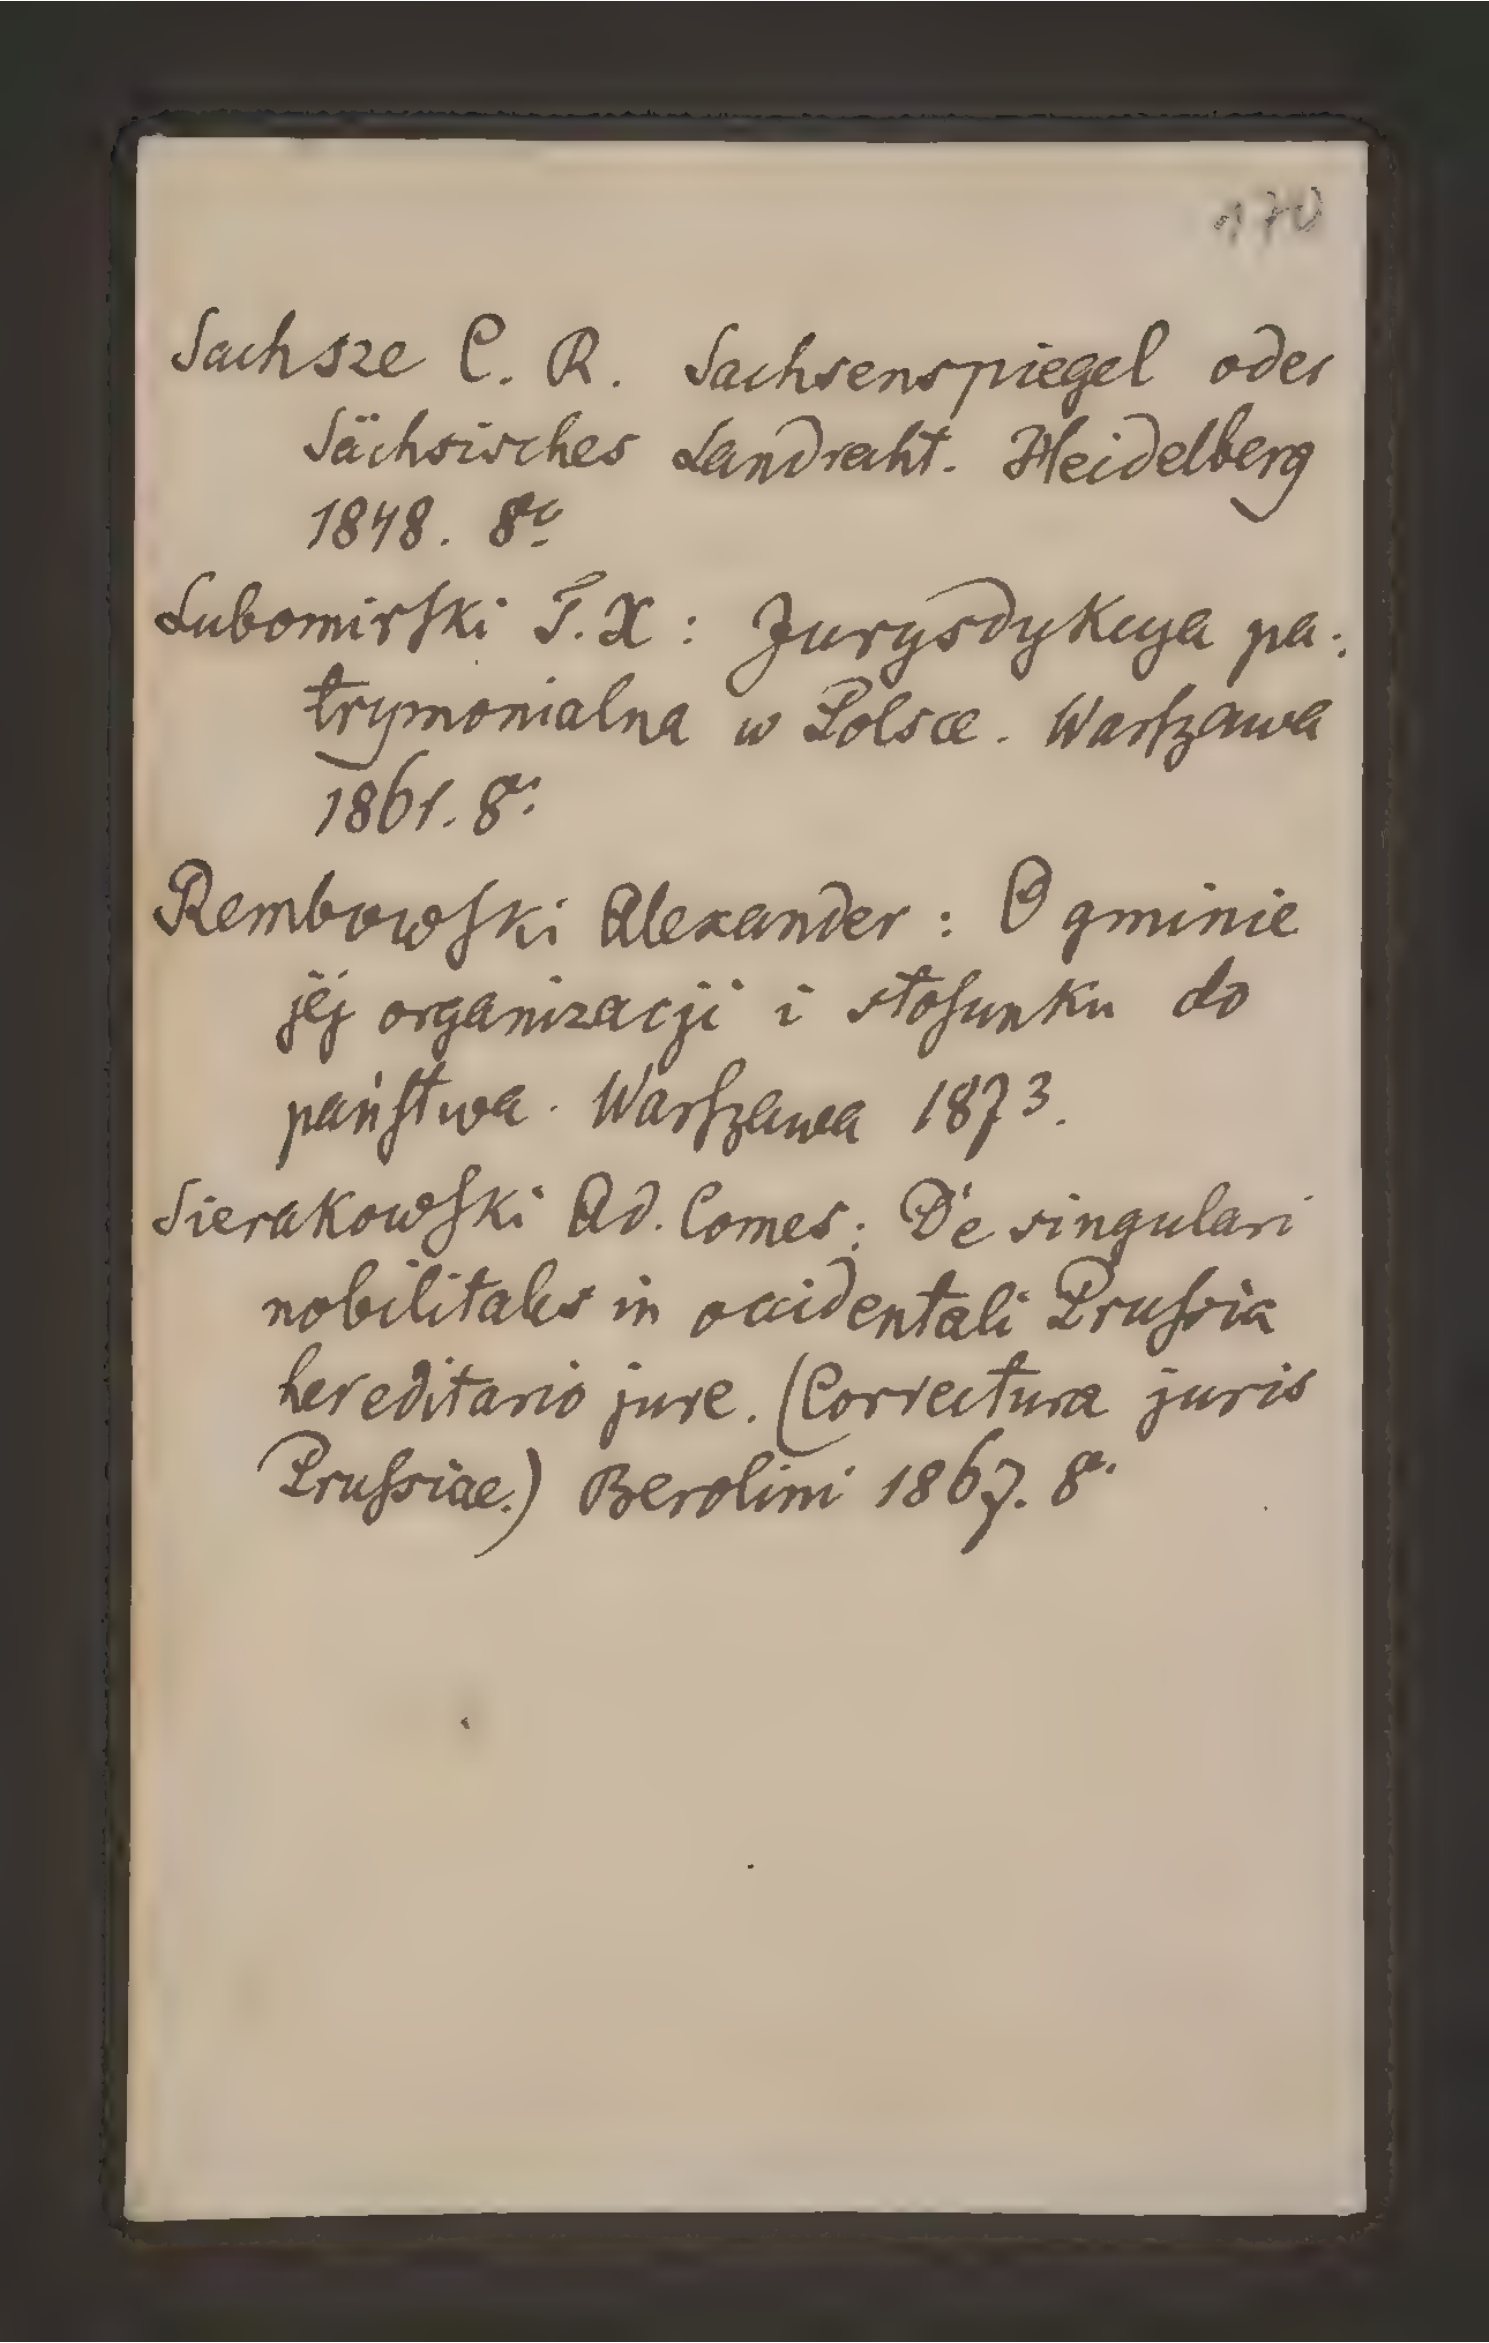 170
Sachsze C. R. Sachsenspiegel oder
Sächsisches Landrecht. Heidelberg
1848. 8vo
Lubomirski T. X : Jurysdykcya pa-
trymonialna w Polsce. Warszawa
1861. 8o
Rembowski Alexander : O gminie
jéj organizacji i stosunku do
państwa. Warszawa 1873.
Sierakowski Ad. Comes: De singulari
nobilitatis in occidentali Prussia
hereditario jure. (Correctura juris
Prussiae.) Berolini 1867. 8o